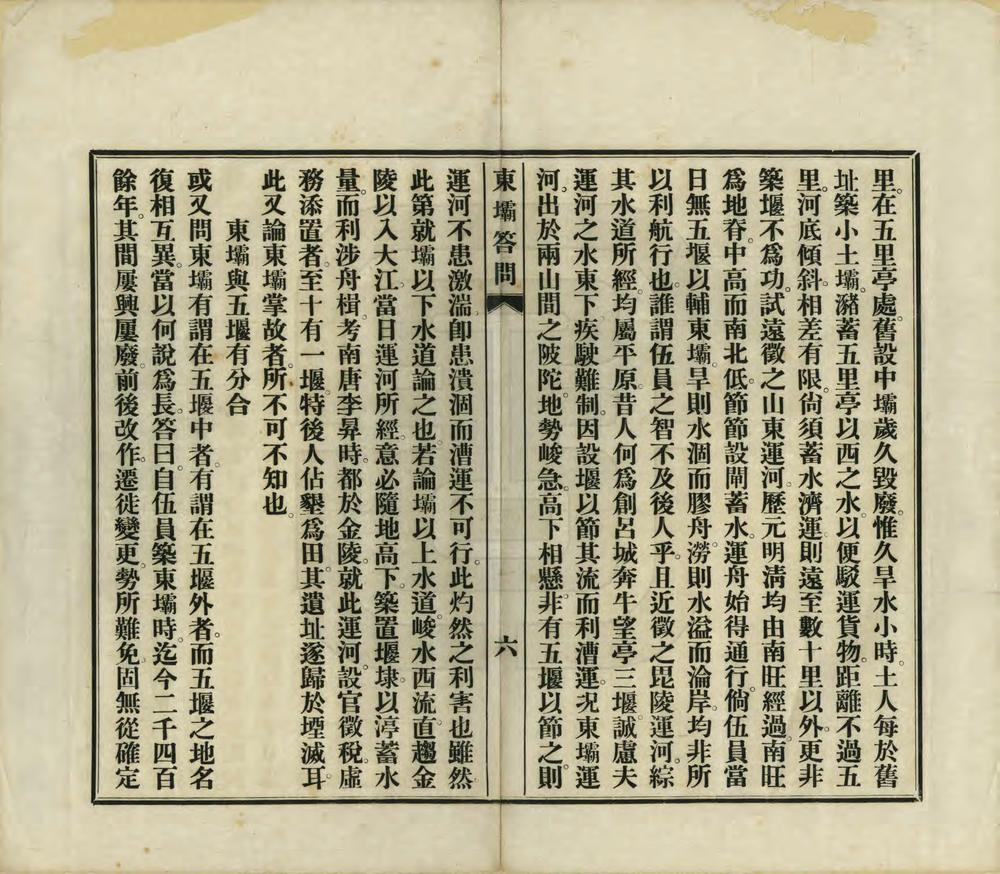 里。在五里亭處。舊設中壩。歲久毀廢。惟久旱水小時。土人每於舊
址築小土壩。瀦蓄五里亭以西之水。以便駁運貨物。距離不過五
里。河底傾斜。相差有限。尙須蓄水濟運。則遠至數十里以外。更非
築堰不爲功。試遠徵之山東運河。歷元明淸均由南旺經過。南旺
爲地脊。中高而南北低。節節設閘蓄水。運舟始得通行。倘伍員當
日無五堰以輔東壩。旱則水涸而膠舟。澇則水溢而淪岸。均非所
以利航行也。誰謂伍員之智不及後人乎。且近徵之毘陵運河。綜
其水道所經。均屬平原。昔人何爲創呂城奔牛望亭三堰。誠慮夫
運河之水東下疾駛難制。因設堰以節其流而利漕運。况東壩運
河。出於兩山間之陂陀。地勢峻急。高下相懸。非有五堰以節之。則
東壩答問
六
運河不患激湍。卽患潰涸。而漕運不可行。此灼然之利害也。雖然
此第就壩以下水道論之也。若論壩以上水道。峻水西流。直趨金
陵。以入大江。當日運河所經。意必隨地高下。築置堰埭。以渟蓄水
量。而利涉舟楫。考南唐李昪時。都於金陵。就此運河。設官徵稅。虛
務添置者。至十有一堰。特後人佔墾爲田。其遺址遂歸於堙滅耳。
此又論東壩掌故者。所不可不知也。
東壩與五堰有分合
或又問東壩有謂在五堰中者。有謂在五堰外者。而五堰之地名
復相互異。當以何說爲長。答曰。自伍員築東壩時。迄今二千四百
餘年。其間屢興屢廢。前後改作。遷徙變更。勢所難免。固無從確定